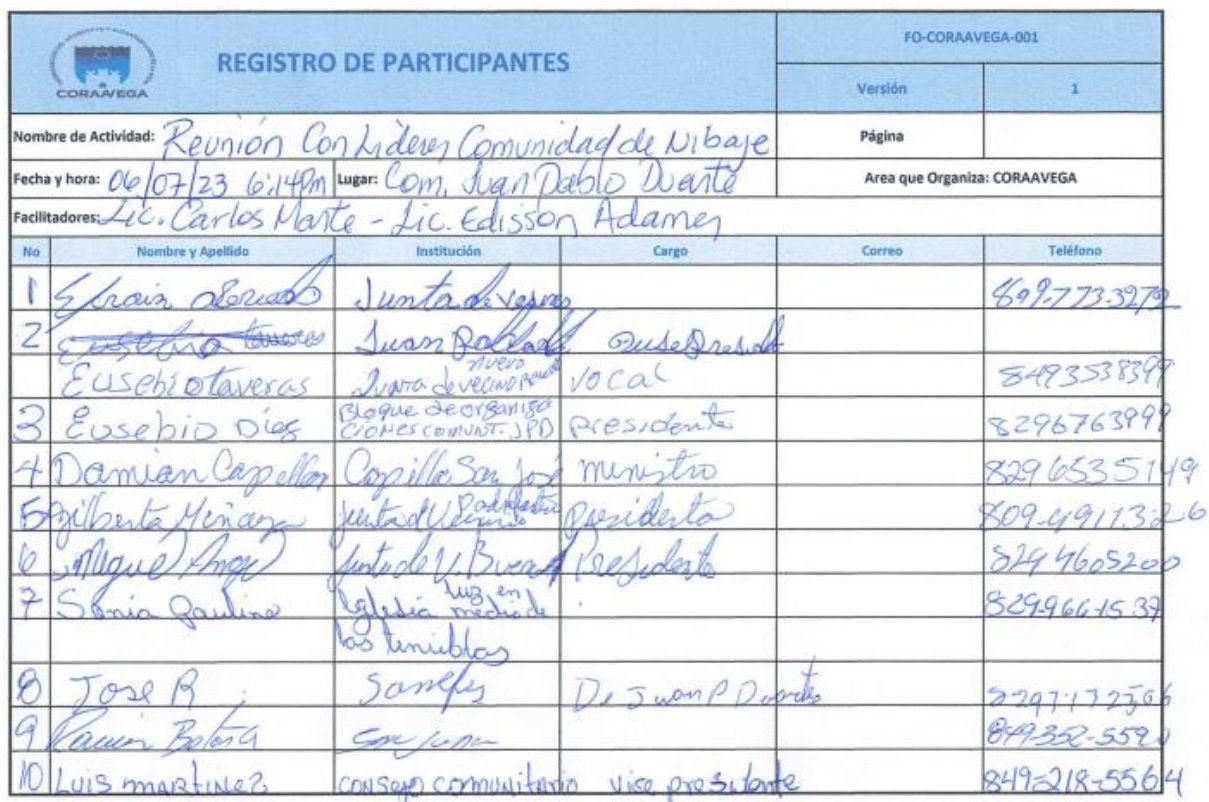 CORAAVEGA
REGISTRO DE PARTICIPANTES
FO-CORAAVEGA-001
Versión 1
Nombre de Actividad: Reunión Con Lideres Comunidad de Nibaje
Página
Fecha y hora: 06/07/23 6:14Pm Lugar: Com. Juan Pablo Duarte
Area que Organiza: CORAAVEGA
Facilitadores: Lic. Carlos Marte - Lic. Edisson Adames
No Nombre y Apellido Institución Cargo Correo Teléfono
1 Efrain Junta de vesinos
2 Eusebio taveras Juan
Eusebio taveras Junta de vecino nuevo vocal 8493538399
3 Eusebio Diaz Bloque de organiza ciones comunt. JPD presidente 8296763999
4 Damian Capellan Capilla San José ministro 829 6535149
5 Gilberta Junta Presidenta 809-4911326
6 Miguel Angel Junta de V. Presidente 829 4605200
7 Sonia Paulino Iglesia luz en medio de 829-966-1537
las tenieblas
8 Jose R De Juan P Duarte
9 849-352-5590
10 Luis martinez consejo comunitario vice presidente 849-218-5564